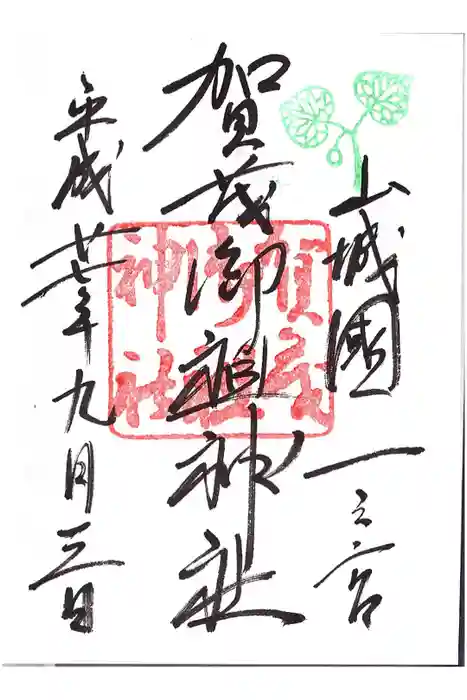 山城國一之宮
賀茂御祖神社
平成廿七年九月三日
賀茂
御祖
神社